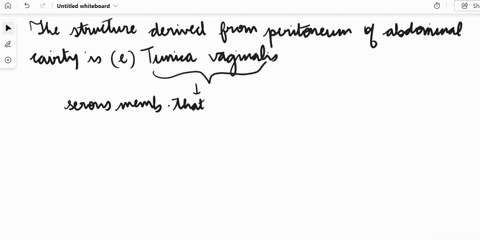 Untitled whiteboard
The structure derived from peritoneum of abdominal
cavity is (e) Tunica vaginalis
serous memb. that